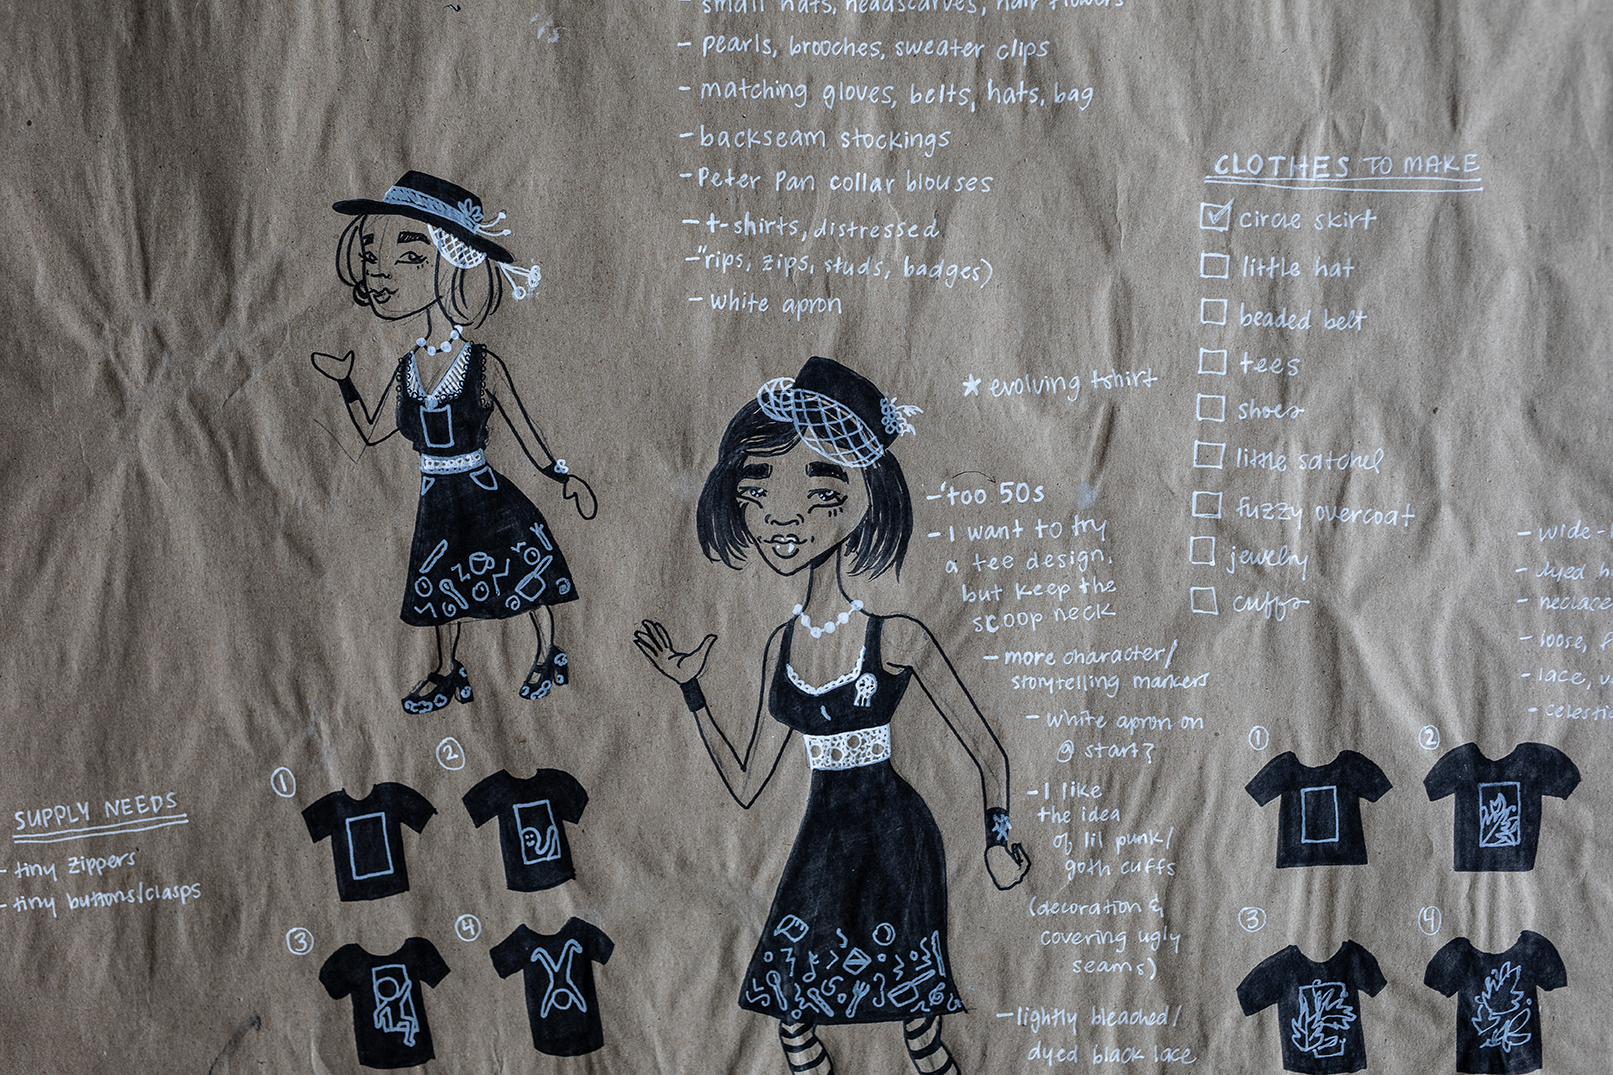 small hats, headscarves, hair flowers
- pearls, brooches, sweater clips
- matching gloves, belts, hats, bag
- backseam stockings
- Peter Pan collar blouses
- t-shirts, distressed
- "rips, zips, studs, badges)
- white apron
* evolving tshirt
- 'too 50s
- I want to try
a tee design,
but keep the
scoop neck
- more character/
storytelling markers
- white apron on
@ start?
- I like
the idea
of lil punk/
goth cuffs
(decoration &
covering ugly
seams)
- lightly bleached/
dyed black lace
CLOTHES TO MAKE
circle skirt
little hat
beaded belt
tees
shoes
little satchel
fuzzy overcoat
jewelry
cuffs
- wide-
- dyed
- necklace
- loose,
- lace,
SUPPLY NEEDS
- tiny zippers
- tiny buttons/clasps
1
2
3
4
1
2
3
4